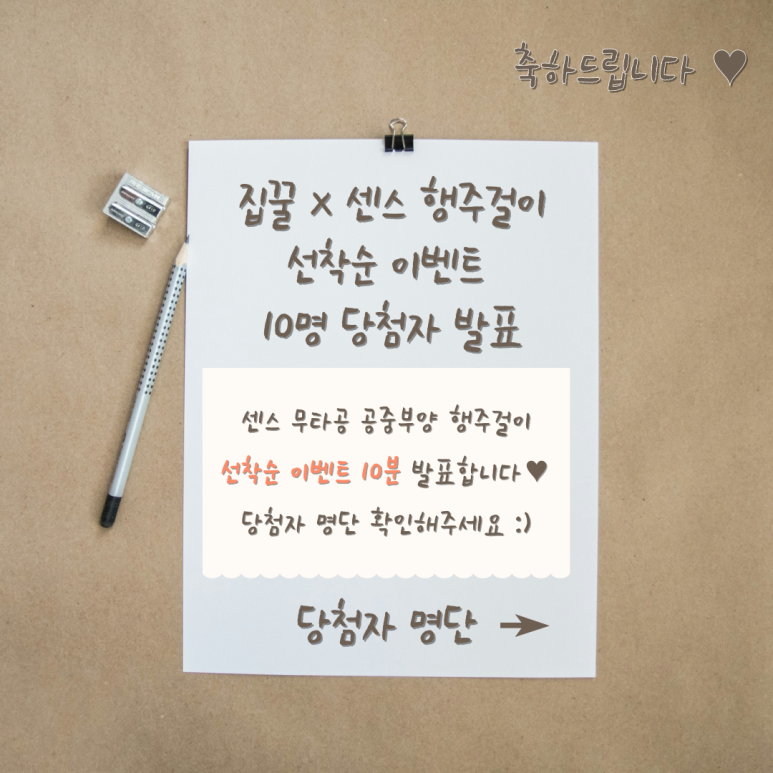 축하드립니다 ♥
집꿀 x 센스 행주걸이
선착순 이벤트
10명 당첨자 발표
센스 무타공 공중부양 행주걸이
선착순 이벤트 10분 발표합니다♥
당첨자 명단 확인해주세요 :)
당첨자 명단 →